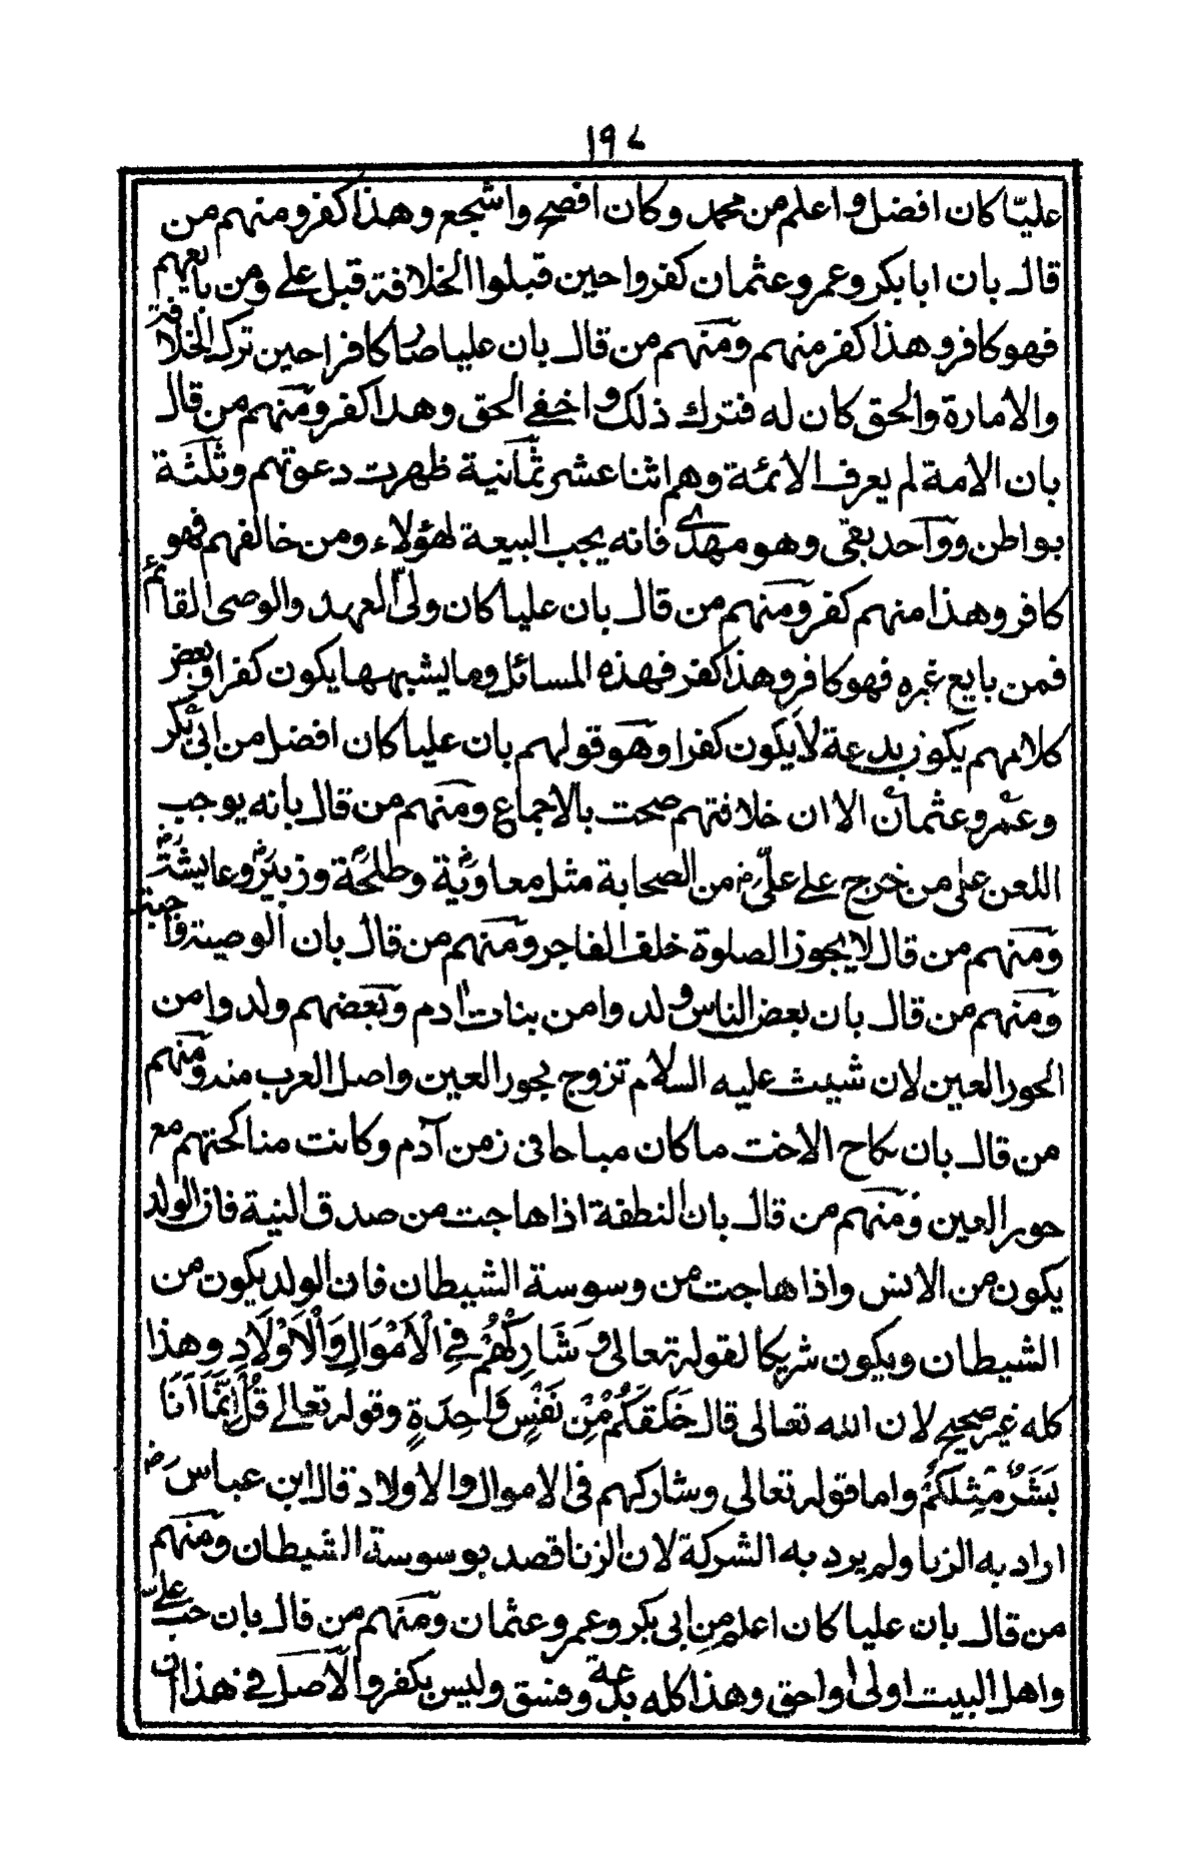 ١٩٧
عليّا كان افضل و اعلم من محمد وكان افصح واشجع وهذا كفر ومنهم من
قال بان ابابكر وعمر وعثمان كفروا حين قبلوا الخلافة قبل على ومن بايعهم
فهو كافر وهذا كفر منهم ومنهم من قال بان عليا صار كافرا حين ترك الخلافة
والامارة والحق كان له فترك ذلك و اخفى الحق وهذا كفر ومنهم من قال
بان الامة لم يعرف الائمة وهم اثنا عشر ثمانية ظهرت دعوتهم وثلثة
بواطن وواحد بقى وهو مهدى فانه يجب البيعة لهؤلاء ومن خالفهم فهو
كافر وهذا منهم كفر ومنهم من قال بان عليا كان ولىّ العهد والوصى القائم
فمن بايع غيره فهو كافر وهذا كفر فهذه المسائل وما يشبهها يكون كفرا وبعض
كلامهم يكون بدعة لا يكون كفرا وهو قولهم بان عليا كان افضل من ابى بكر
وعمر وعثمان الا ان خلافتهم صحت بالاجماع ومنهم من قال بانه يوجب
اللعن على من خرج على علىّ رض من الصحابة مثل معاوية وطلحة وزبير وعايشة رض
ومنهم من قال لا يجوز الصلوة خلف الفاجر ومنهم من قال بان الوصية واجبة
ومنهم من قال بان بعض الناس ولد وا من بنات ادم وبعضهم ولد وا من
الحور العين لان شيث عليه السلام تزوج بحور العين واصل العرب منه ومنهم
من قال بان نكاح الاخت ما كان مباحا فى زمن آدم وكانت مناكحتهم مع
حور العين ومنهم من قال بان النطفة اذا هاجت من صدق النية فان الولد
يكون من الانس واذا هاجت من وسوسة الشيطان فان الولد يكون من
الشيطان ويكون شريكا لقوله تعالى وَشَارِكْهُمْ فِي الْاَمْوَالِ وَالْاَوْلَادِ وهذا
كله غير صحيح لان الله تعالى قال خَلَقَكُمْ مِّنْ نَفْسٍ وَاحِدَةٍ وقوله تعالى قُلْ اِنَّمَا اَنَا
بَشَرٌ مِّثْلُكُمْ واما قوله تعالى وشاركهم فى الاموال والاولاد قال ابن عباس رض
اراد به الزنا ولم يرد به الشركة لان الزنا قصد بوسوسة الشيطان ومنهم
من قال بان عليا كان اعلم من ابى بكر وعمر وعثمان ومنهم من قال بان حب علىّ
واهل البيت اولى واحق وهذا كله بدعة وفسق وليس بكفر والاصل فى هذا ان